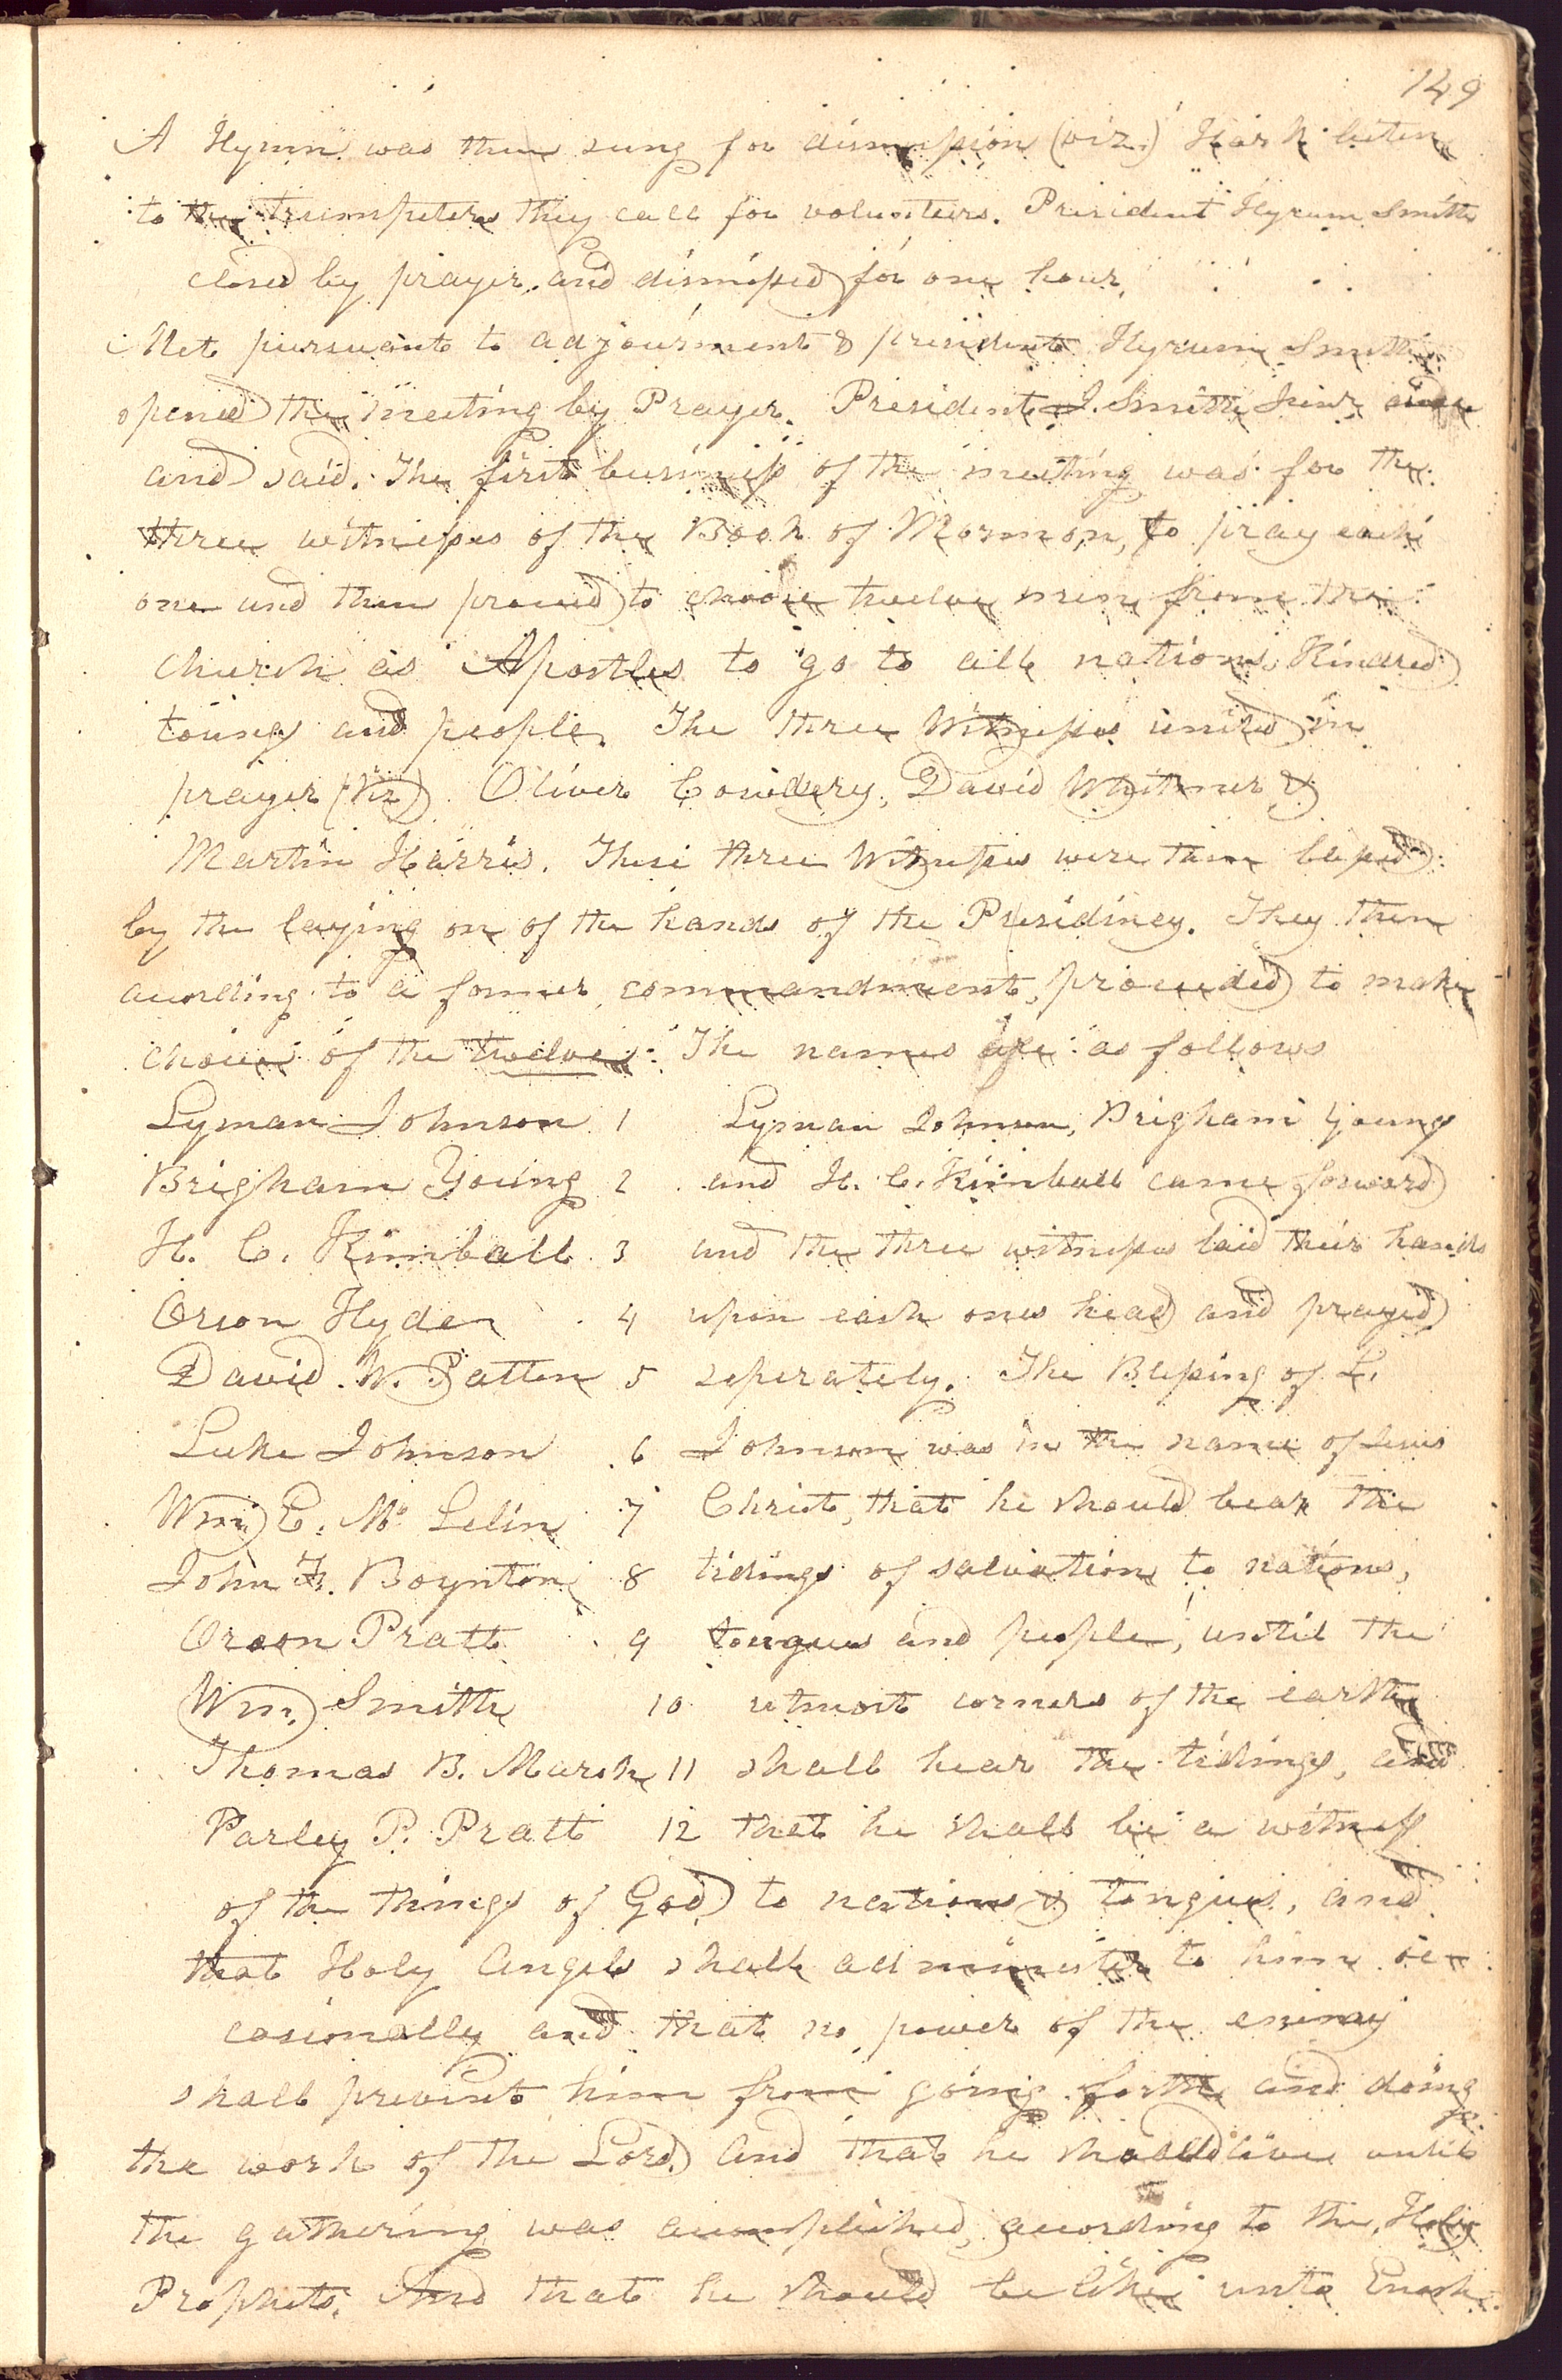 149
A Hymn was then sung for dismission (viz.) Hark listen
to the trumpeters they call for volunteers. President Hyrum Smith
closed by prayer. and dismissed for one hour.
Met pursuant to adjournment & president Hyrum Smith
opened the meeting by Prayer. President J. Smith Junr
and said. The first business of the meeting was for the
three witnesses of the Book of Mormon, to pray each
one and then proceed to choose twelve men from the
church as Apostles to go to all nations, Kindred
toungs and people. The three Witnesses united in
prayer (Viz) Oliver Cowdery, David Whitmer &
Martin Harris. These three Witnesses were then blessed
by the laying on of the hands of the Presidincy. They then
acording to a former commandment, proceeded to make
choice of the twelve. The names are as follows
Lyman Johnson 1 Lyman Johnson, Brigham Young
Brigham Young 2 and H. C. Kimball came forward
H. C. Kimball 3 and the three witnesses laid their hands
Orson Hyde 4 upon each ones head and prayed
David W. Patten 5 seperately. The Blessing of L.
Luke Johnson 6 Johnson was in the name of Jesus
Wm E. Mc Lelin 7 Christ, that he should bear the
John F. Boynton 8 tidings of salvation to nations,
Orson Pratt 9 tongues and people, until the
Wm. Smith 10 utmost corners of the earth
Thomas B. Marsh 11 shall hear the tidings, and
Parley P. Pratt 12 that he shall be a witness
of the things of God to nations & tongues, and
that Holy Angels shall administer to him oc-
casionally and that no power of the enimy
shall prevent him from going forth and doing
the work of the Lord. And that he should live until
the gathering was accomplished, according to the Holy
Prophets. And that he should be like unto Enoch.